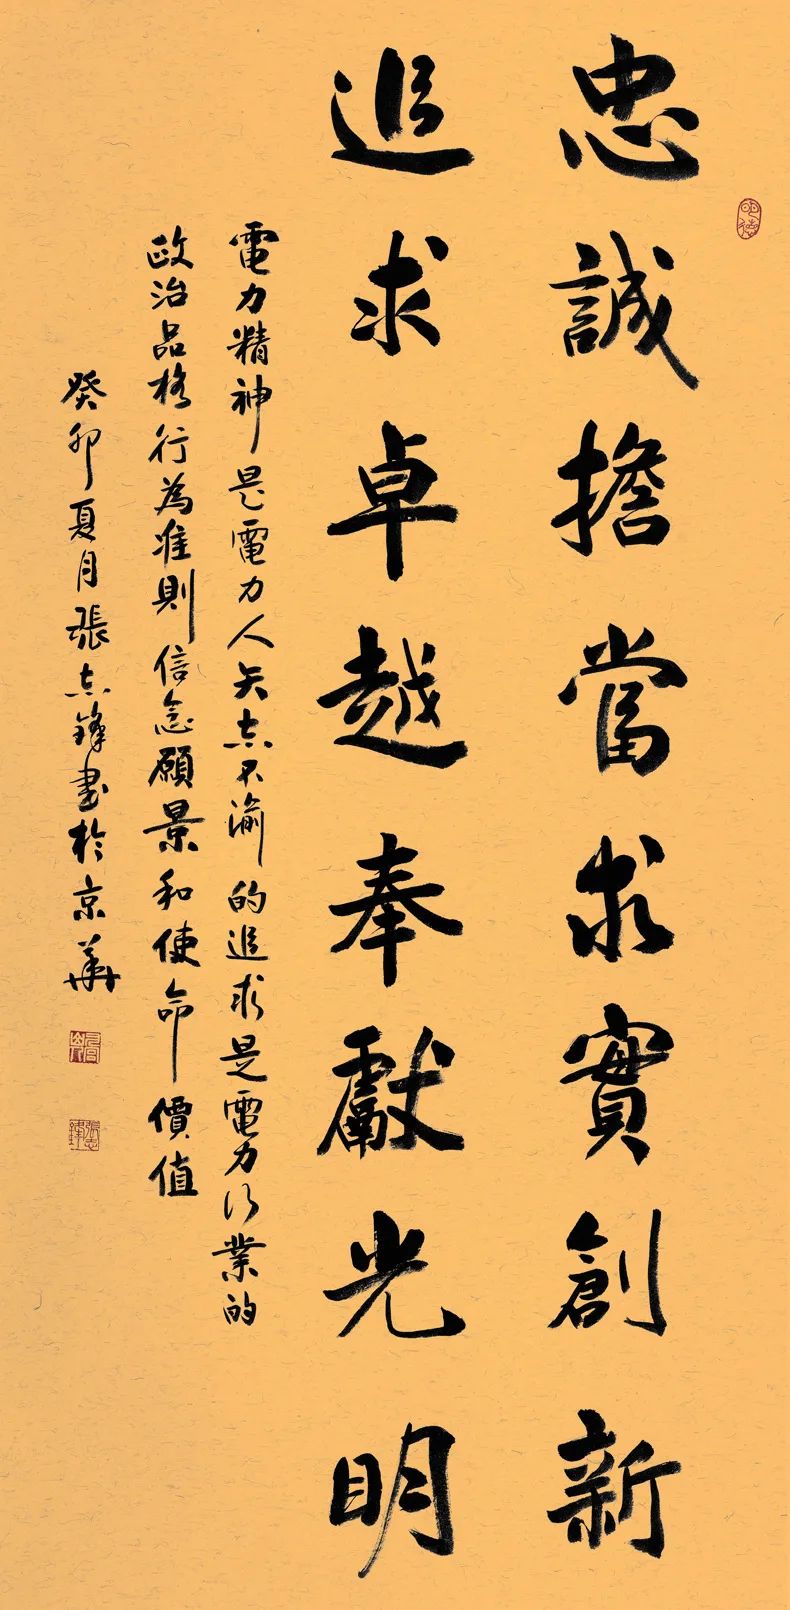 忠誠擔當求實創新
追求卓越奉獻光明
電力精神是電力人矢志不渝的追求是電力行業的
政治品格行為准則信念願景和使命價值
癸卯夏月張志鋒書於京華